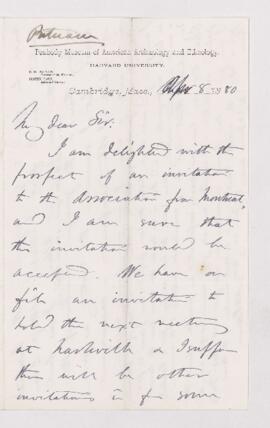 Putnam
Peabody Museum of American Archæology and Ethnology,
HARVARD UNIVERSITY.
Cambridge, Mass., Apr 8 1880
My dear Sir.
I am delighted with the
prospect of an invitation
to the Association from Montreal,
and I am sure that
the invitation would be
accepted. We have on
file an invitation to
hold the next meeting
at Nashville & I suppose
there will be other
invitations in from some